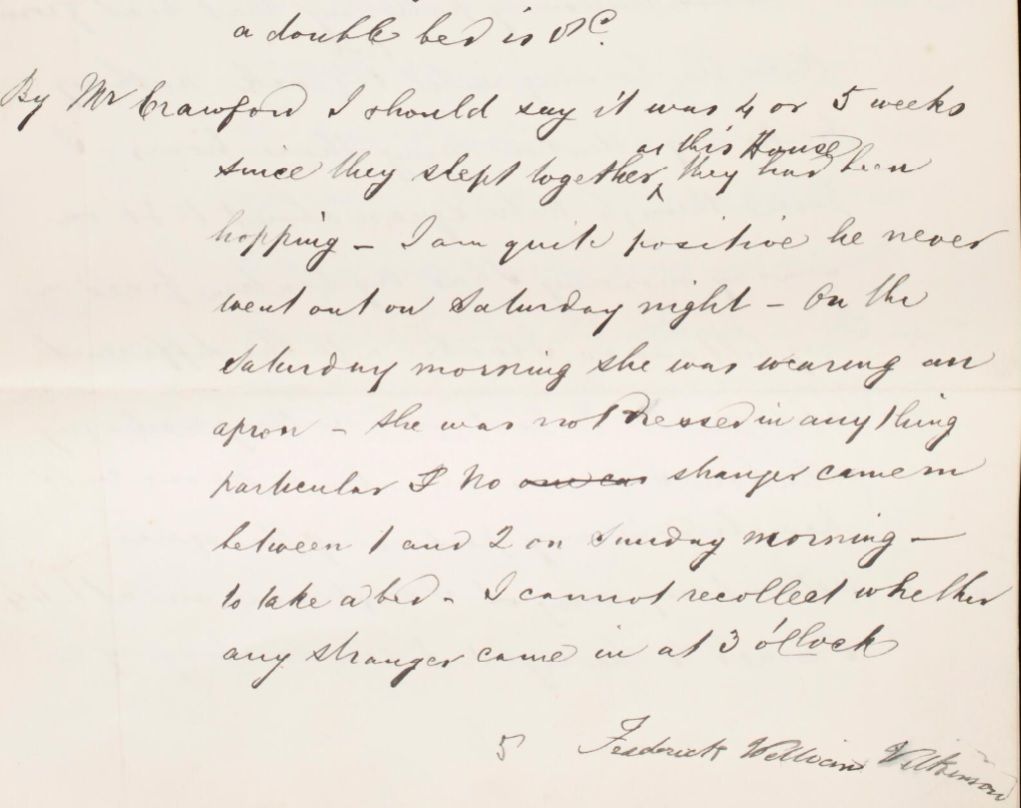 a double bed is 8d.
By Mr Crawford I should say it was 4 or 5 weeks
at this House
since they slept together ‸ they had been
hopping – I am quite positive he never
went out on Saturday night – On the
Saturday morning she was wearing an
apron – She was not dressed in any thing
particular No stranger came in
between 1 and 2 on Sunday morning –
to take a bed – I cannot recollect whether
any stranger came in at 3 o'Clock
5 Frederick William Wilkinson